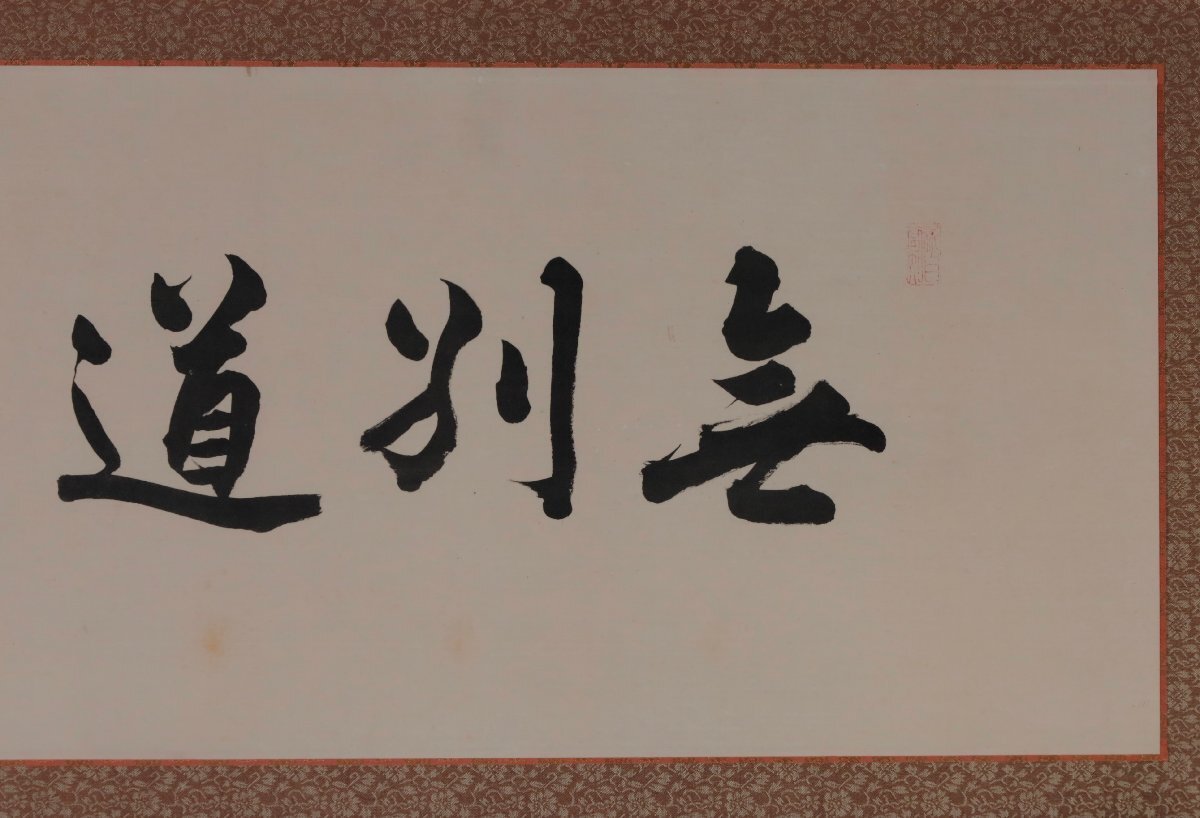 無別道